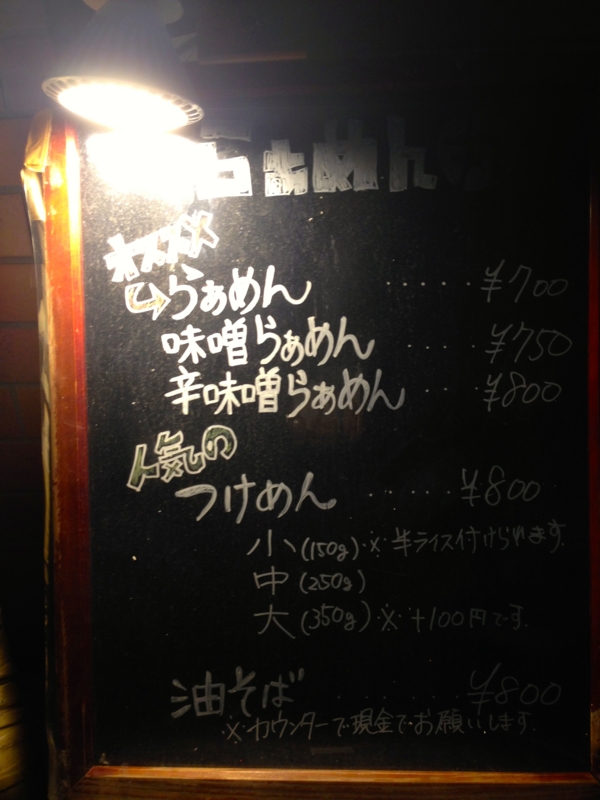 らぁめん
オススメ
らぁめん ・・・・・ ¥700
味噌らぁめん ・・・・ ¥750
辛味噌らぁめん ・・・ ¥800
人気の
つけめん ・・・・・ ¥800
小(150g)※半ライス付けられます。
中(250g)
大(350g)※+100円です。
油そば ・・・・・ ¥800
※カウンターで現金でお願いします。